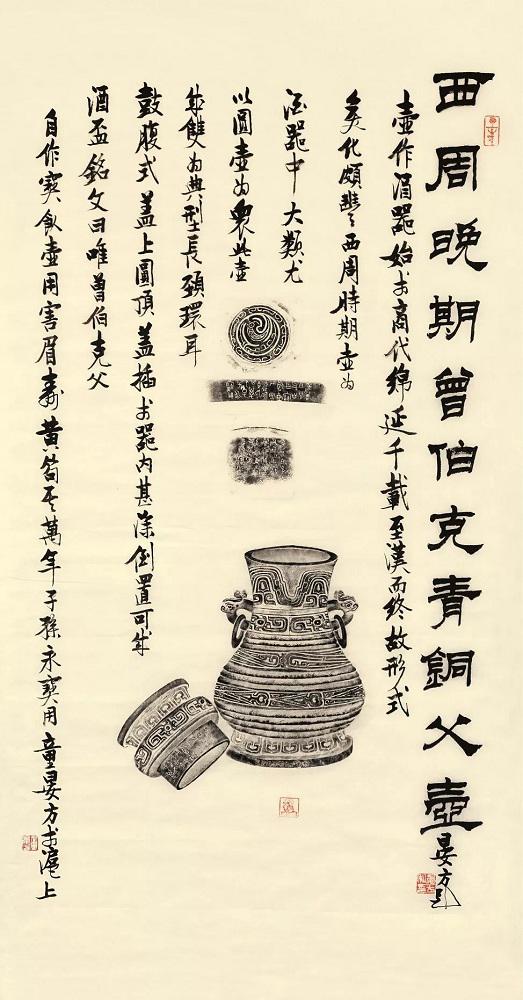 西周晚期曾伯克青銅父壺
晏方題
壺作酒器始於商代綿延千載至漢而終故形式
変化頗豐西周時期壺为
酒器中大類尤
以圓壺为衆此壺
成雙为典型長頸環耳
鼓腹式蓋上圓頂蓋插於器内甚深倒置可成
酒盃銘文曰唯曾伯克父
自作寶飲壺用害眉壽黃耇其萬年子孫永寶用童晏方於滬上